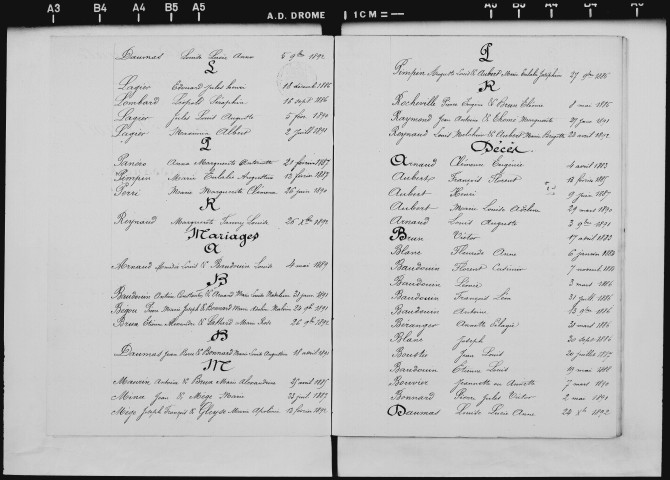 A3 B4 A4 B5 A5 A.D. DROME 1CM = A5 B5 A4 B4 A3
Daumas Louise Lucie Anna 5 9bre 1892
L
Lagier Edouard Jules Henri 18 décemb 1886
Lombard Léopold Séraphin 16 sept 1886
Lagier Jules Louis Auguste 5 fev. 1890
Lagier Albert 2 Juill 1891
P
Anna Marguerite Antoinette 20 février 1887
Pimpin Marie Eulalie Augustine 12 février 1887
Marie Marguerite 26 juin 1890
R
Reynaud Marguerite Fanny Louise 26 Xbre 1891
Mariages
A
Arnaud Louis & Baudouin Louise 4 mai 1889
B
Baudouin & Arnaud Marie Louise 31 janv. 1891
Marie Joseph & 24 9bre 1891
Brun Etienne Alexandre & Marie Rose 26 9bre 1892
D
Daumas Jean & Bonnard Marie Louise Augustine 18 avril 1891
M
Maurin Antoine & Brun Marie Alexandrine 27 avril 1885
Mina Jean & Mege Marie 23 juil 1887
Mege Joseph François & Marie Apolonie 12 février 1892
P
Pimpin Auguste Louis & Aubert Marie Eulalie Joséphine 27 9bre 1886
R
Rocheville Pierre Eugène & Brun 8 mai 1886
Raymond Jean Antoine & Marguerite 29 janv 1891
Reynaud Louis & Aubert Marie 23 avril 1892
Décès.
Arnaud Clémence Eugénie 4 avril 1883
Aubert François Florent 12 février 1885
Aubert Henri 9 janv 1887
Aubert Marie Louise Adeline 29 mars 1890
Arnaud Louis Auguste 2 9bre 1891
Brun Victor 17 avril 1883
Blanc Anne 6 janvier 1884
Baudouin Florent Casimir 7 novemb 1884
Baudouin Léonie 3 mars 1886
Baudouin François Léon 31 juill 1886
Baudouin Antoine 13 9bre 1886
Beranger Annette 21 mars 1886
Blanc Joseph 20 sept 1886
Jean Louis 20 juillet 1887
Baudouin Etienne Louis 19 mai 1888
Bouvier Jeannette ou Annette 7 mars 1890
Bonnard Pierre Jules Victor 2 mai 1891
Daumas Louise Lucie Anne 24 Xbre 1892